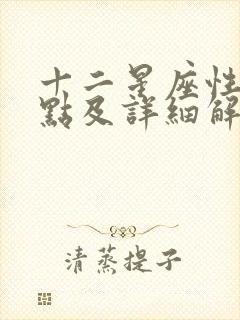 十二星座性
點及詳細解
清蒸提子